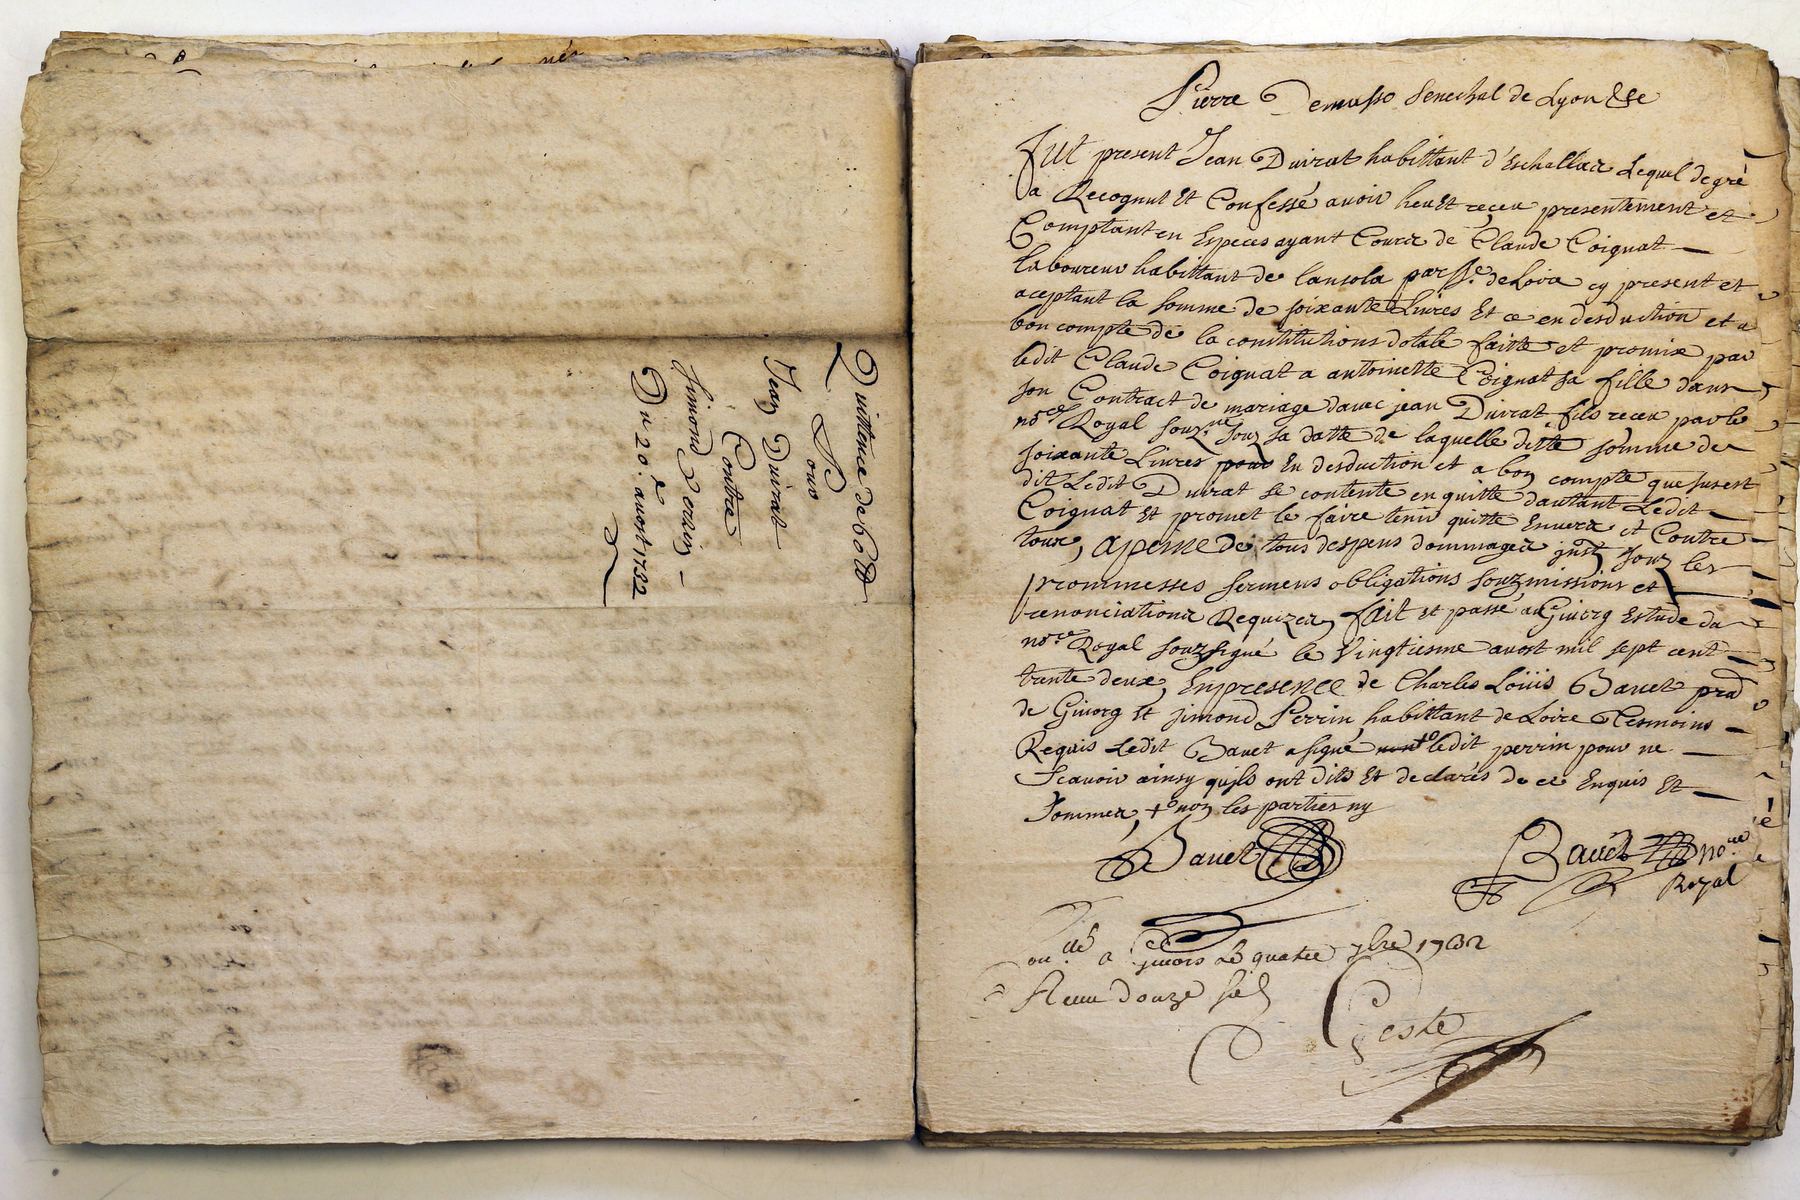 Quittence de 60 ₶
Pour
Jean Duirat
Contre
Simond Perrin
Du 20.e aoust 1732
Pierre Demusso Senechal de Lyon &c
Fut present Jean Duirat habittant d'Eschallar Lequel de gré
a Recognut Et Confessé avoir heu Et receu presentement et
Comptant en Especes ayant Cours de Claude Coignat
laboureur habittant de lansola parsse. de Loire cy present et
aceptant la somme de soixante Livres Et ce en desduction et a
bon compte de la constitutions dotale faitte et promise par
ledit Claude Coignat a antoinette Coignat sa fille dans
son Contract de mariage d'avec jean Duirat fils receu par le
nore Royal souzne souz sa datte de laquelle ditte somme de
soixante Livres pour En desduction et a bon compte que susEst
dit Ledit Duirat se contente en quitte dautant Ledit
Coignat Et promet le faire tenir quitte Envers et Contre
tous, apeine de tous despens dommages jnstz souz les
prommesses sermens obligations souzmissions et
renonciations Requizes, fait et passé au Givorg Estude du
nore Royal souzsigné le Vingtiesme avost mil sept cent
trente deux, Enpresence de Charles Loüis Bavet prad
de Givorg Et Simond Perrin, habittant de Loire Tesmoins
Requis Ledit Bavet a signé non +o ledit perrin pour ne
Scavoir ainsy qu'jls ont dits Et declarés de ce Enquis Et
Sommes, +o non les parties ny
Bavet
Bavet nore
Royal
conllé a Givors Le quatre 7bre 1732
Receu douze sols
Geste